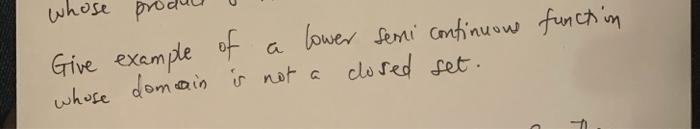 whose product
Give example of a lower semi continuous function
whose domain is not a closed set.